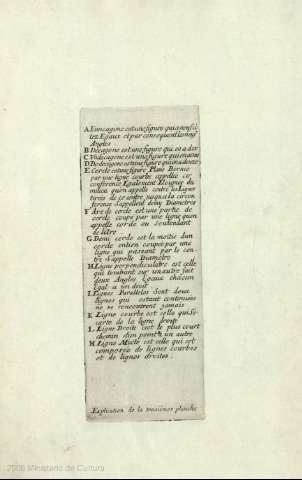 A. Enneagone est une figure qui a neuf cô
tez Egaux et par consequent neuf
Angles
B. Decagone est une figure qui en a dix
C. Undecagone est une figure qui en a onze
D. Dodecagone est une figure qui en a douze
E. Cercle est une figure Plane Bornée
par une ligne courbe appellée cir
conference Egalement Eloignée du
milieu qu'on appelle centre les Lignes
tirées de ce centre jusqu'a la circon
ference s'appellent demy Diametres
F Arc de cercle est une partie de
cercle coupé par une ligne qu'on
appelle corde ou soutendant
G. Demi cercle est la moitié d'un
cercle entier coupée par une
ligne qui passant par le cen
tre s'appelle Diametre
H. Ligne perpendiculaire est celle
qui tombant sur un autre fait
deux Angles Egaux chacun
Egal a un droit
I. Lignes Paralleles sont deux
lignes qui estant continuées
ne se rencontrent jamais
K. Ligne courbe est celle qui se
carte de la ligne droite
L. Ligne Droite c'est le plus court
chemin d'un point a un autre
M. Ligne Mixte est celle qui est
composée de lignes courbes
et de lignes droites.
Explication de la troisième planche
2009 Ministerio de Cultura